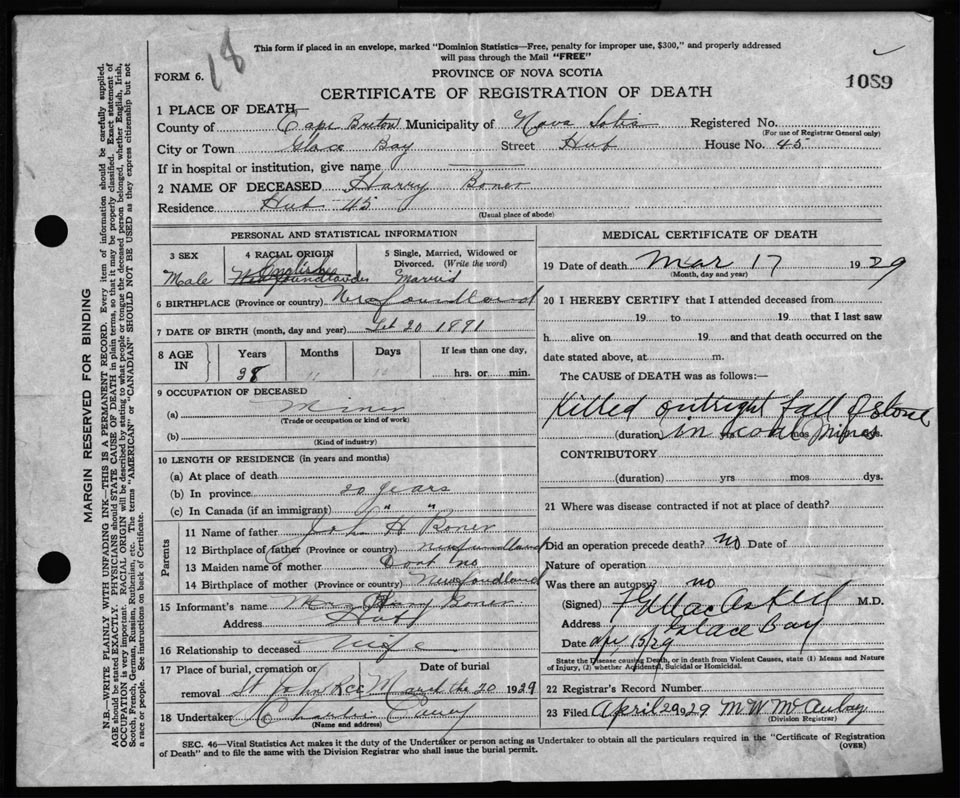 18
This form if placed in an envelope, marked "Dominion Statistics—Free, penalty for improper use, $300," and properly addressed
will pass through the Mail "FREE"
FORM 6.
PROVINCE OF NOVA SCOTIA
1089
CERTIFICATE OF REGISTRATION OF DEATH
1 PLACE OF DEATH—
County of Cape Breton Municipality of Nova Sotia Registered No.
(For use of Registrar General only)
City or Town Glace Bay Street Hub House No. 45
If in hospital or institution, give name
2 NAME OF DECEASED Harry Boner
Residence Hub 45
(Usual place of abode)
PERSONAL AND STATISTICAL INFORMATION
3 SEX 4 RACIAL ORIGIN 5 Single, Married, Widowed or
Divorced. (Write the word)
Male English Newfoundlander Married
6 BIRTHPLACE (Province or country) Newfoundland
7 DATE OF BIRTH (month, day and year) 20 1891
8 AGE IN Years Months Days If less than one day,
38 11 hrs. or min.
9 OCCUPATION OF DECEASED
(a) Miner
(Trade or occupation or kind of work)
(b)
(Kind of industry)
10 LENGTH OF RESIDENCE (in years and months)
(a) At place of death
(b) In province 20 years
(c) In Canada (if an immigrant) " "
Parents
11 Name of father John H Boner
12 Birthplace of father (Province or country) newfundland
13 Maiden name of mother Dont no
14 Birthplace of mother (Province or country) Newfoundland
15 Informant's name Mrs Harry Boner
Address
16 Relationship to deceased Wife
17 Place of burial, cremation or Date of burial
removal St John March the 20 1929
18 Undertaker Charlie Curry
(Name and address)
MEDICAL CERTIFICATE OF DEATH
19 Date of death Mar 17 1929
(Month, day and year)
20 I HEREBY CERTIFY that I attended deceased from
19 to 19 that I last saw
h alive on 19 and that death occurred on the
date stated above, at m.
The CAUSE of DEATH was as follows:—
Killed outright fall of stone
in coal mines
(duration) yrs mos dys.
CONTRIBUTORY
(duration) yrs mos dys.
21 Where was disease contracted if not at place of death?
Did an operation precede death? no Date of
Nature of operation
Was there an autopsy? no
(Signed) MacAskill M.D.
Address Glace Bay
Date Apr 15/29
State the Disease causing Death, or in death from Violent Causes, state (1) Means and Nature
of Injury, (2) whether Accidental, Suicidal or Homicidal.
22 Registrar's Record Number
23 Filed April 29 1929 M W McAulay
(Division Registrar)
SEC. 46—Vital Statistics Act makes it the duty of the Undertaker or person acting as Undertaker to obtain all the particulars required in the "Certificate of Registration
of Death" and to file the same with the Division Registrar who shall issue the burial permit.
(OVER)
MARGIN RESERVED FOR BINDING
N.B.—WRITE PLAINLY WITH UNFADING INK—THIS IS A PERMANENT RECORD. Every item of information should be carefully supplied.
AGE should be stated EXACTLY. PHYSICIANS should STATE CAUSE OF DEATH in plain terms, so that it may be properly classified. Exact statement of
OCCUPATION is very important. RACIAL ORIGIN will be described by stating to what people or tongue the deceased person belonged, whether English, Irish,
Scotch, French, German, Russian, Ruthenian, etc. The terms "AMERICAN" or "CANADIAN" SHOULD NOT BE USED as they express citizenship but not
a race or people. See instructions on back of Certificate.